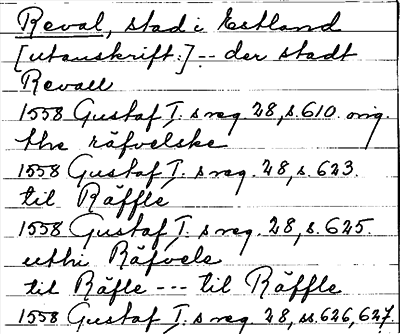 Reval, stad i Estland
[utanskrift:] -- der stadt
Revall
1558 Gustaf I. s reg. 28, s. 610. orig.
the räfvelske
1558 Gustaf I. s reg. 28, s. 623.
til Räffle
1558 Gustaf I. s reg. 28, s. 625.
uthi Räfvele
til Räfle --- til Räffle
1558 Gustaf I. s reg. 28, ss. 626, 627.